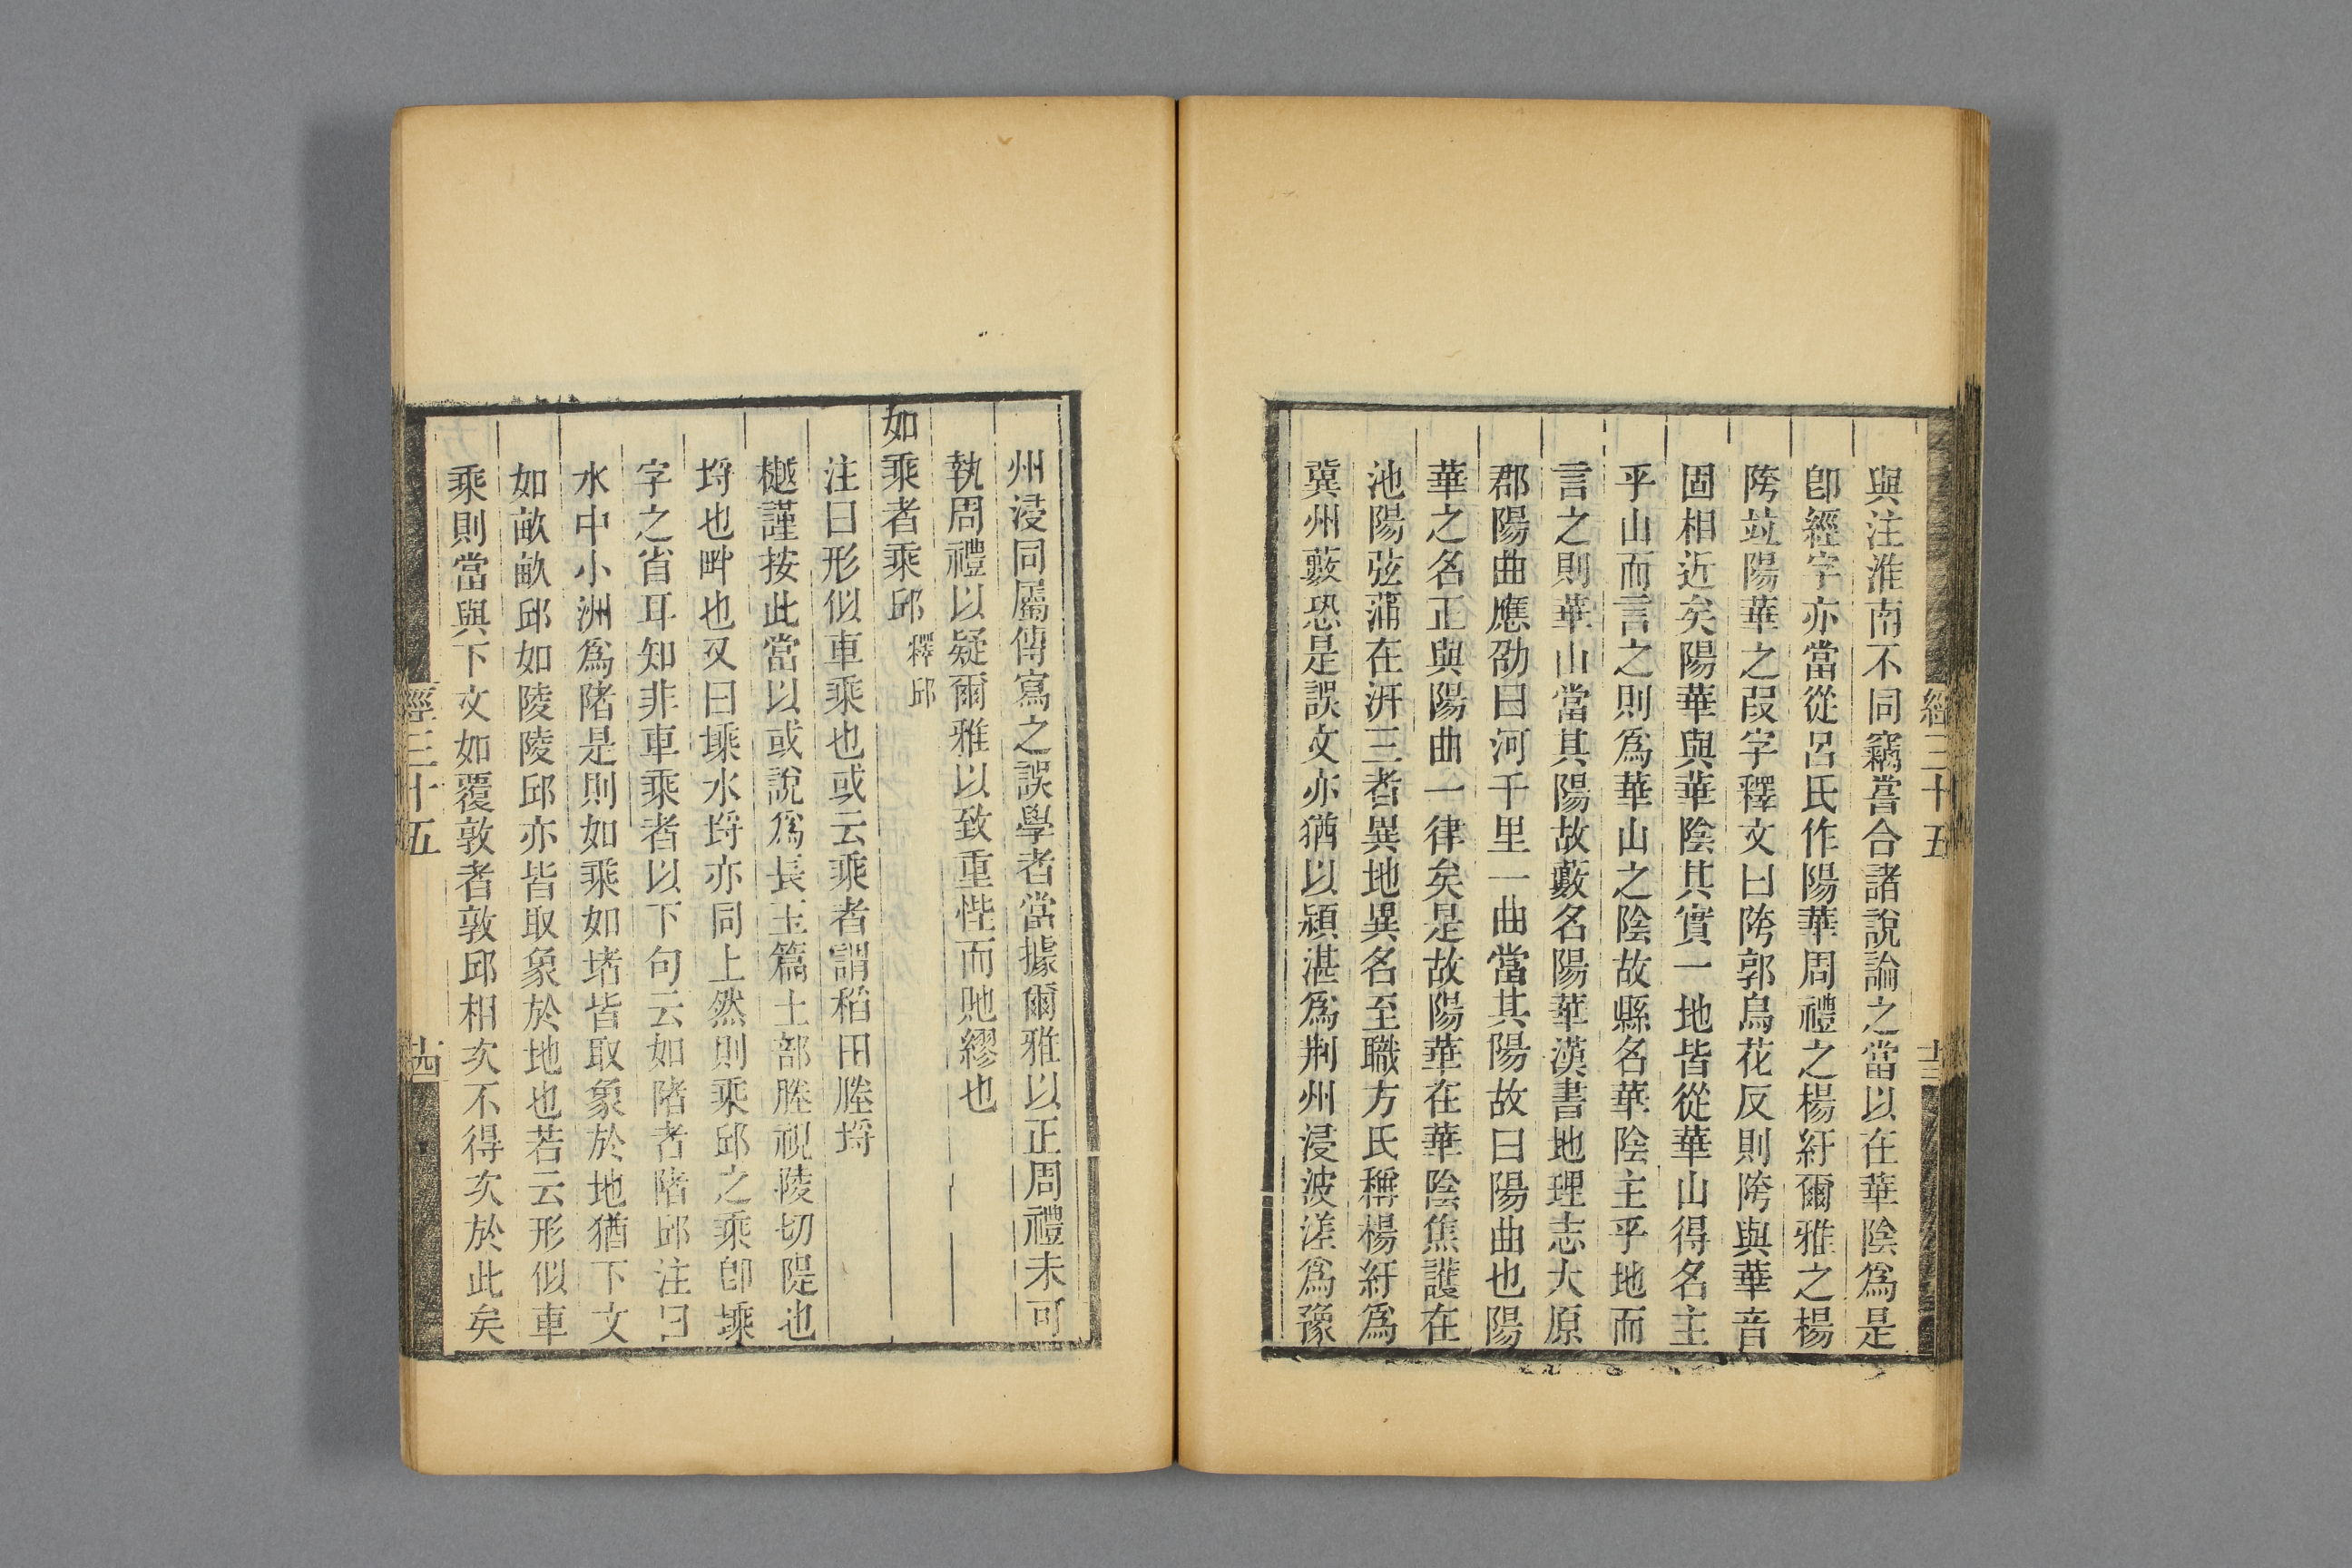 經三十五
十三
與注淮南不同竊嘗合諸說論之當以在華陰爲是
卽經字亦當從呂氏作陽華周禮之楊紆爾雅之楊
陓竝陽華之叚字釋文曰陓郭烏花反則陓與華音
固相近矣陽華與華陰其實一地皆從華山得名主
乎山而言之則爲華山之陰故縣名華陰主乎地而
言之則華山當其陽故藪名陽華漢書地理志大原
郡陽曲應劭曰河千里一曲當其陽故曰陽曲也陽
華之名正與陽曲一律矣是故陽華在華陰焦護在
池陽弦蒲在汧三者異地異名至職方氏稱楊紆爲
冀州藪恐是誤文亦猶以潁湛爲荆州浸波溠爲豫
州浸同屬傳寫之誤學者當據爾雅以正周禮未可
執周禮以疑爾雅以致重悂而貤繆也
如乘者乘邱 釋邱
注曰形似車乘也或云乘者謂稻田塍埒
樾謹按此當以或說爲長玉篇土部塍視陵切隄也
埒也畔也又曰堘水埒亦同上然則乘邱之乘卽堘
字之省耳知非車乘者以下句云如陼者陼邱注曰
水中小洲爲陼是則如乘如堵皆取象於地猶下文
如畝畝邱如陵陵邱亦皆取象於地也若云形似車
乘則當與下文如覆敦者敦邱相次不得次於此矣
經三十五
十四